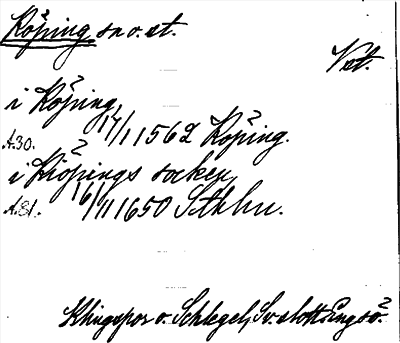 Köping, sn o. st.
Vstm.
i Köping,
17/1 1562 Köping.
A.30.
i Kiöpings socken,
16/11 1650 Sthlm.
A.81.
Klingspor o. Schlegel, Sv. slott Engsö.